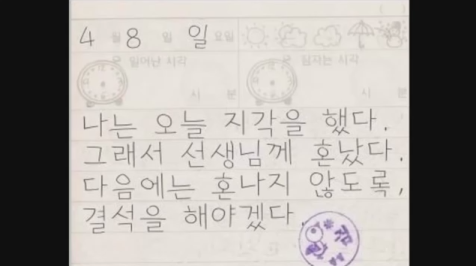 4 월 8 일 일 요일
일어난 시각
잠자는 시각
시 분
시 분
나는 오늘 지각을 했다.
그래서 선생님께 혼났다.
다음에는 혼나지 않도록,
결석을 해야겠다.